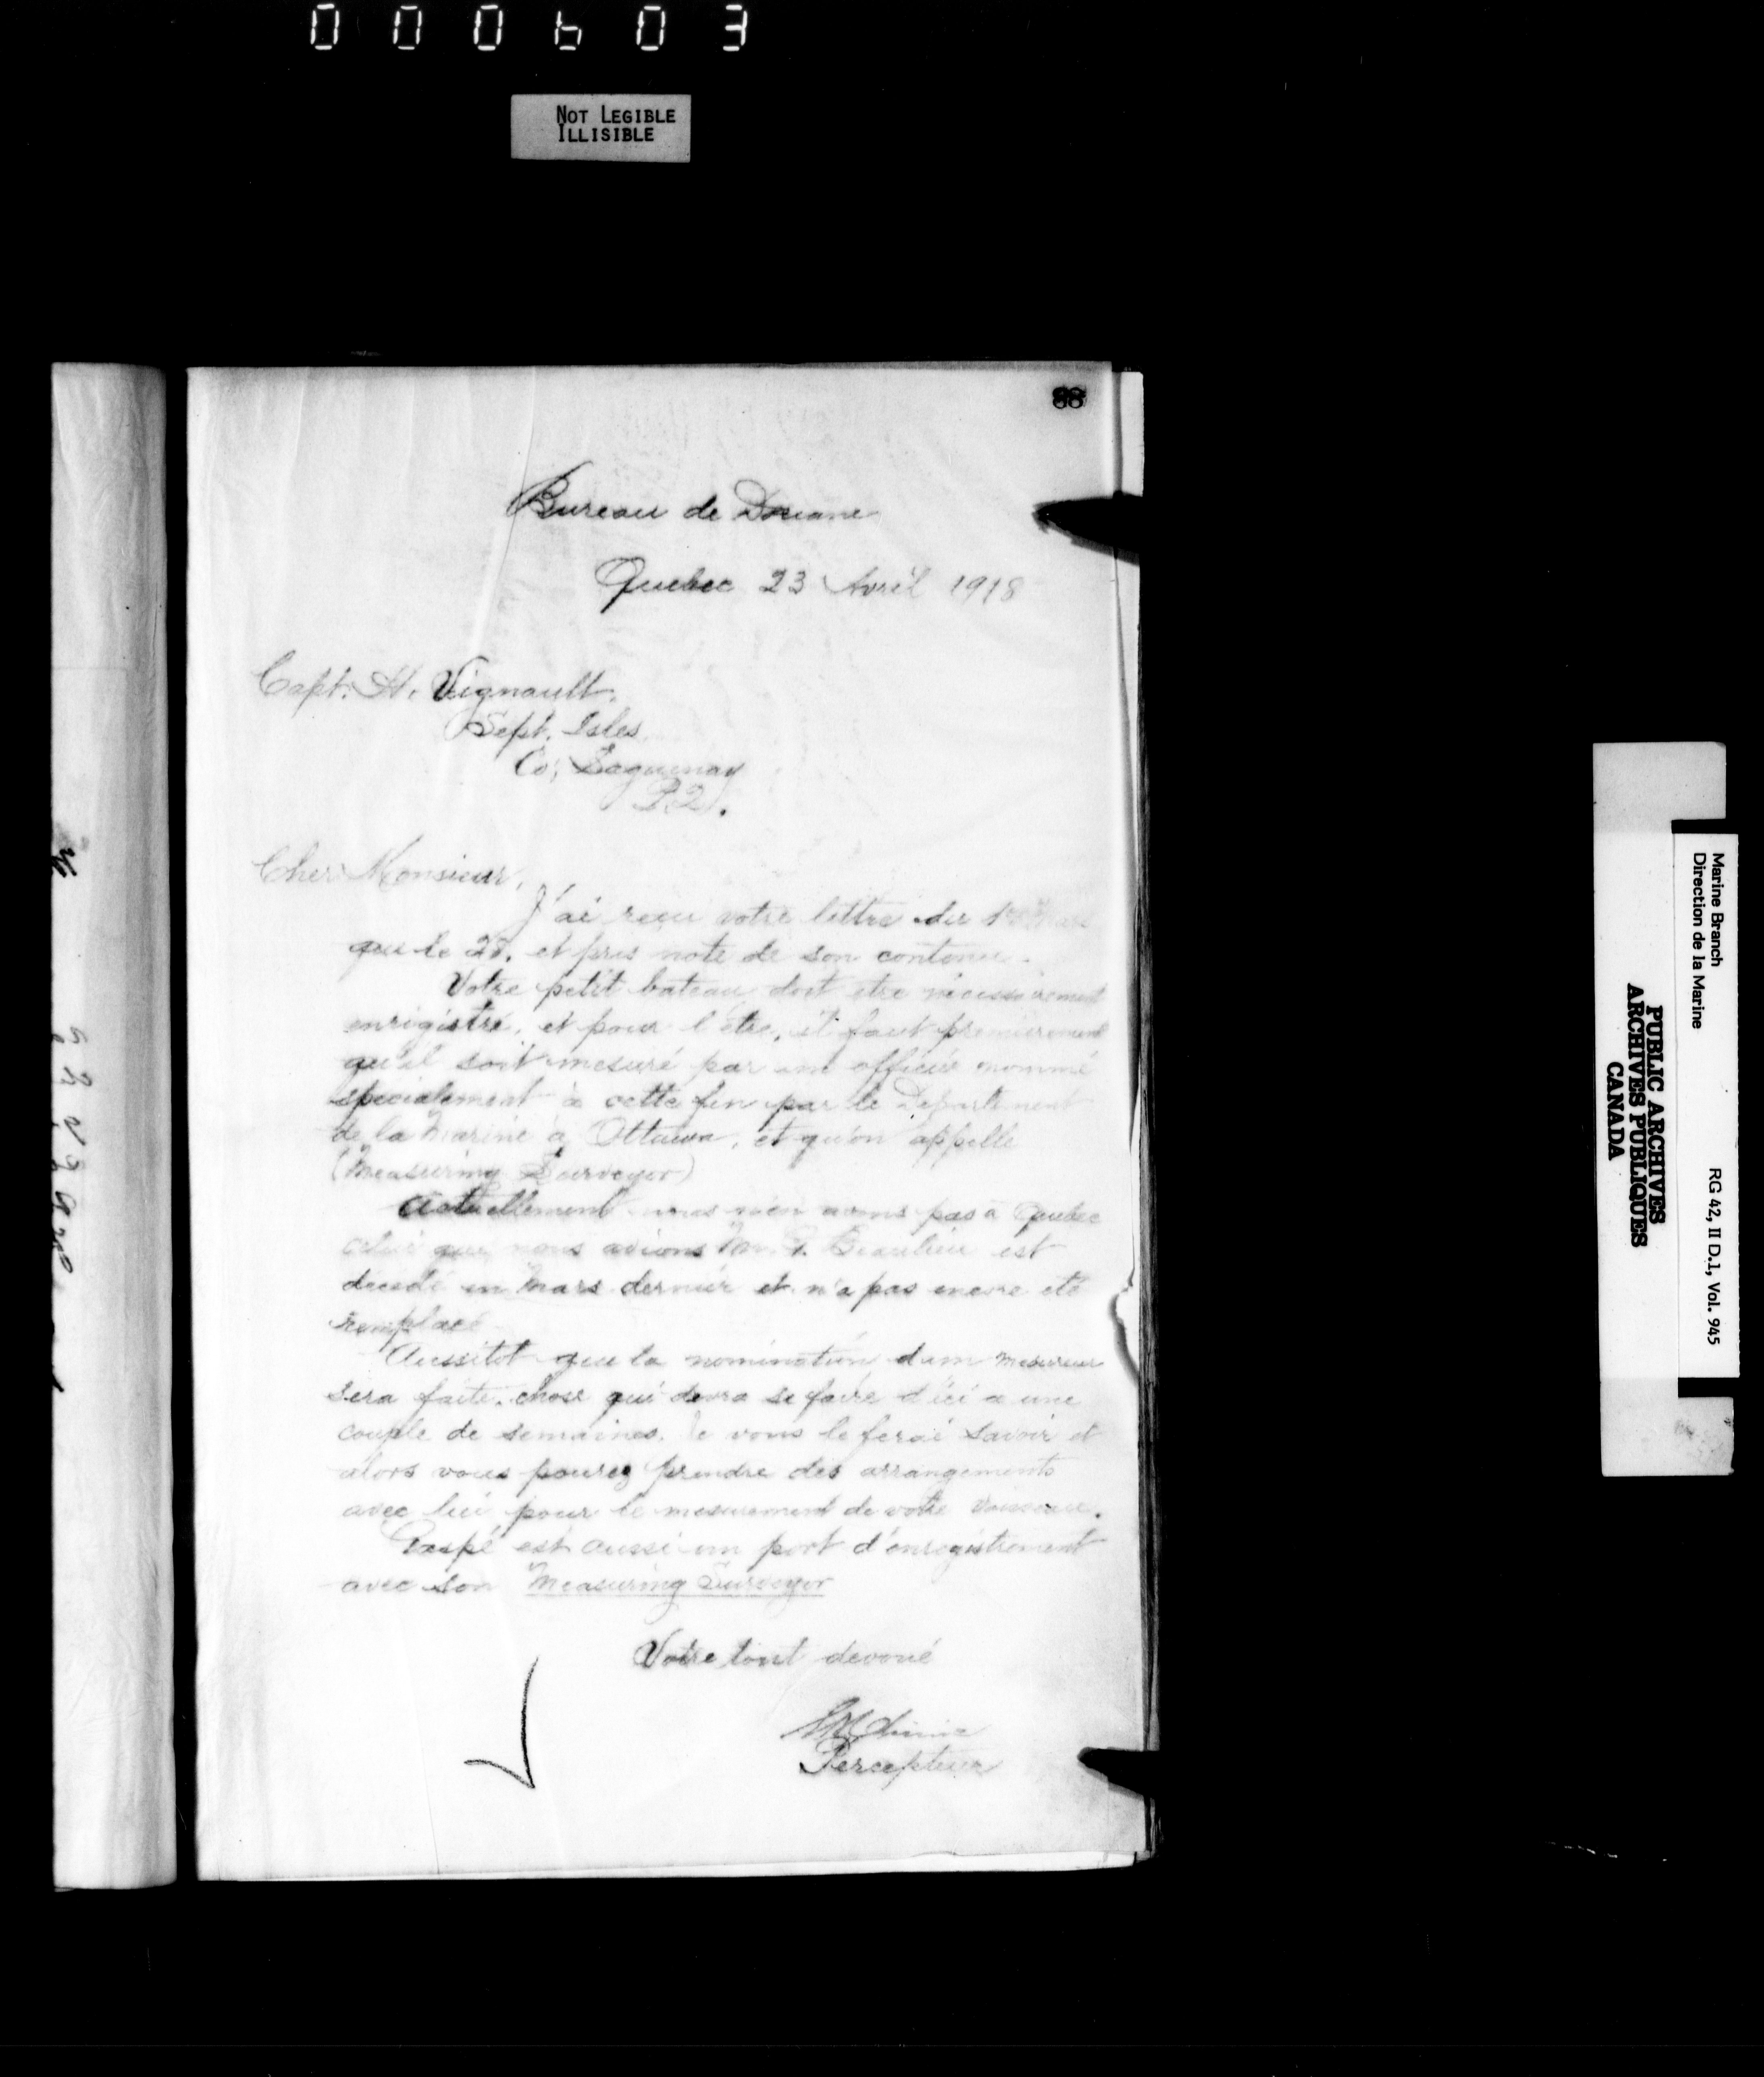 000603
NOT LEGIBLE
ILLISIBLE
88
Bureau de Douane
Quebec 23 Avril 1918
Capt. H. Vignault.
Sept. Isles
Co; Saguenay
P.Q.
Cher Monsieur,
J'ai reçu votre lettre du
que le et pris note de son contenu.
Votre petit bateau doit etre necessairement
enrigistré, et pour l'etre, il faut premierement
qu'il soit mesuré par un officier nommé
specialement à cette fin par le Departement
de la Marine a Ottawa, et qu'on appelle
(Measuring Surveyor)
Actuellement nous n'en avons pas a Quebec
celui que nous avions Mr. Beaulieu est
décédé en Mars dernier et n'a pas encore été
remplacé
Aussitot que la nomination d'un mesureur
sera faite. chose qui devra se faire d'ici a une
couple de semaines. Je vous le ferai savoir et
alors vous pourez prendre des arrangements
avec lui pour le mesurement de votre vaisseau.
Gaspé est aussi un port d'enregistrement
avec son Measuring Surveyor
Votre tout devoué
Percepteur
Marine Branch
Direction de la Marine
RG 42, II D.1, Vol. 945
PUBLIC ARCHIVES
ARCHIVES PUBLIQUES
CANADA